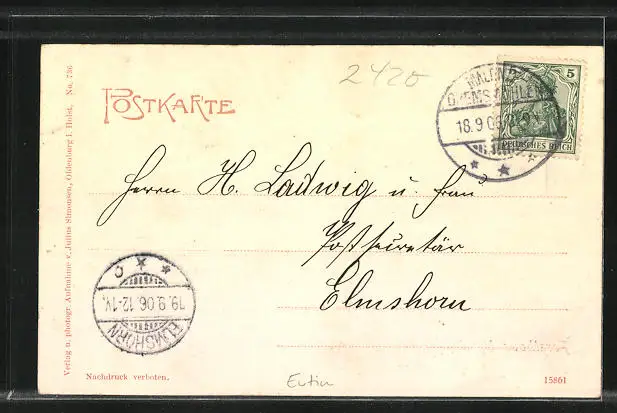 2420
POSTKARTE
5
DEUTSCHES REICH
18.9.06
Herrn H. Ladwig u. Frau
Postsecretär
Elmshorn
19.9.06.12-1V.
ELMSHORN
Verlag u. photogr. Aufnahme v. Julius Simonsen, Oldenburg i. Holst. No. 736
Nachdruck verboten.
Eutin
15861